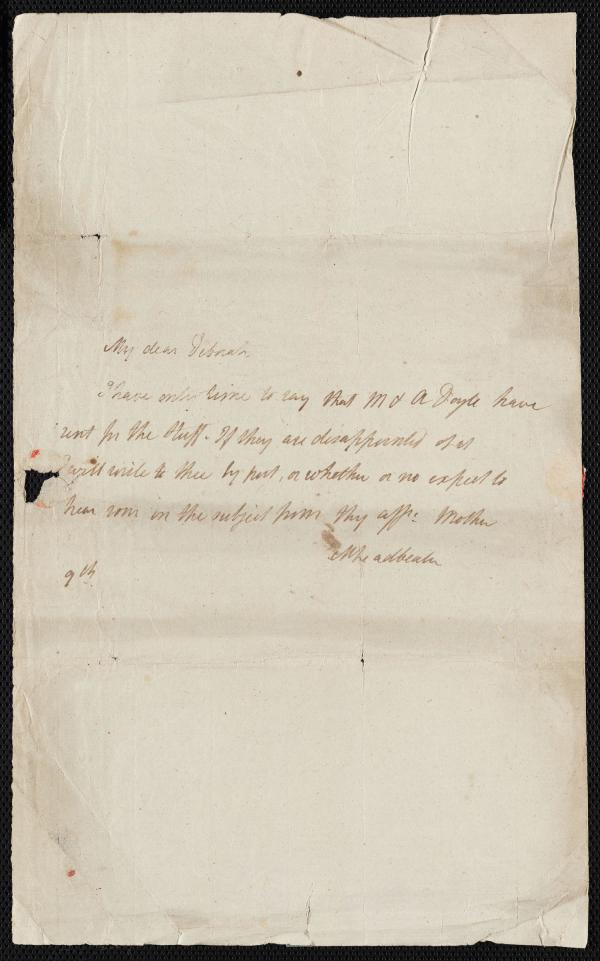 My dear Deborah,
I have only time to say that M & A Doyle have
sent for the stuff. If they are disappointed of it
I will write to thee by post, or whether or no expect to
hear soon on the subject from thy affte. Mother
MLeadbeater
9th